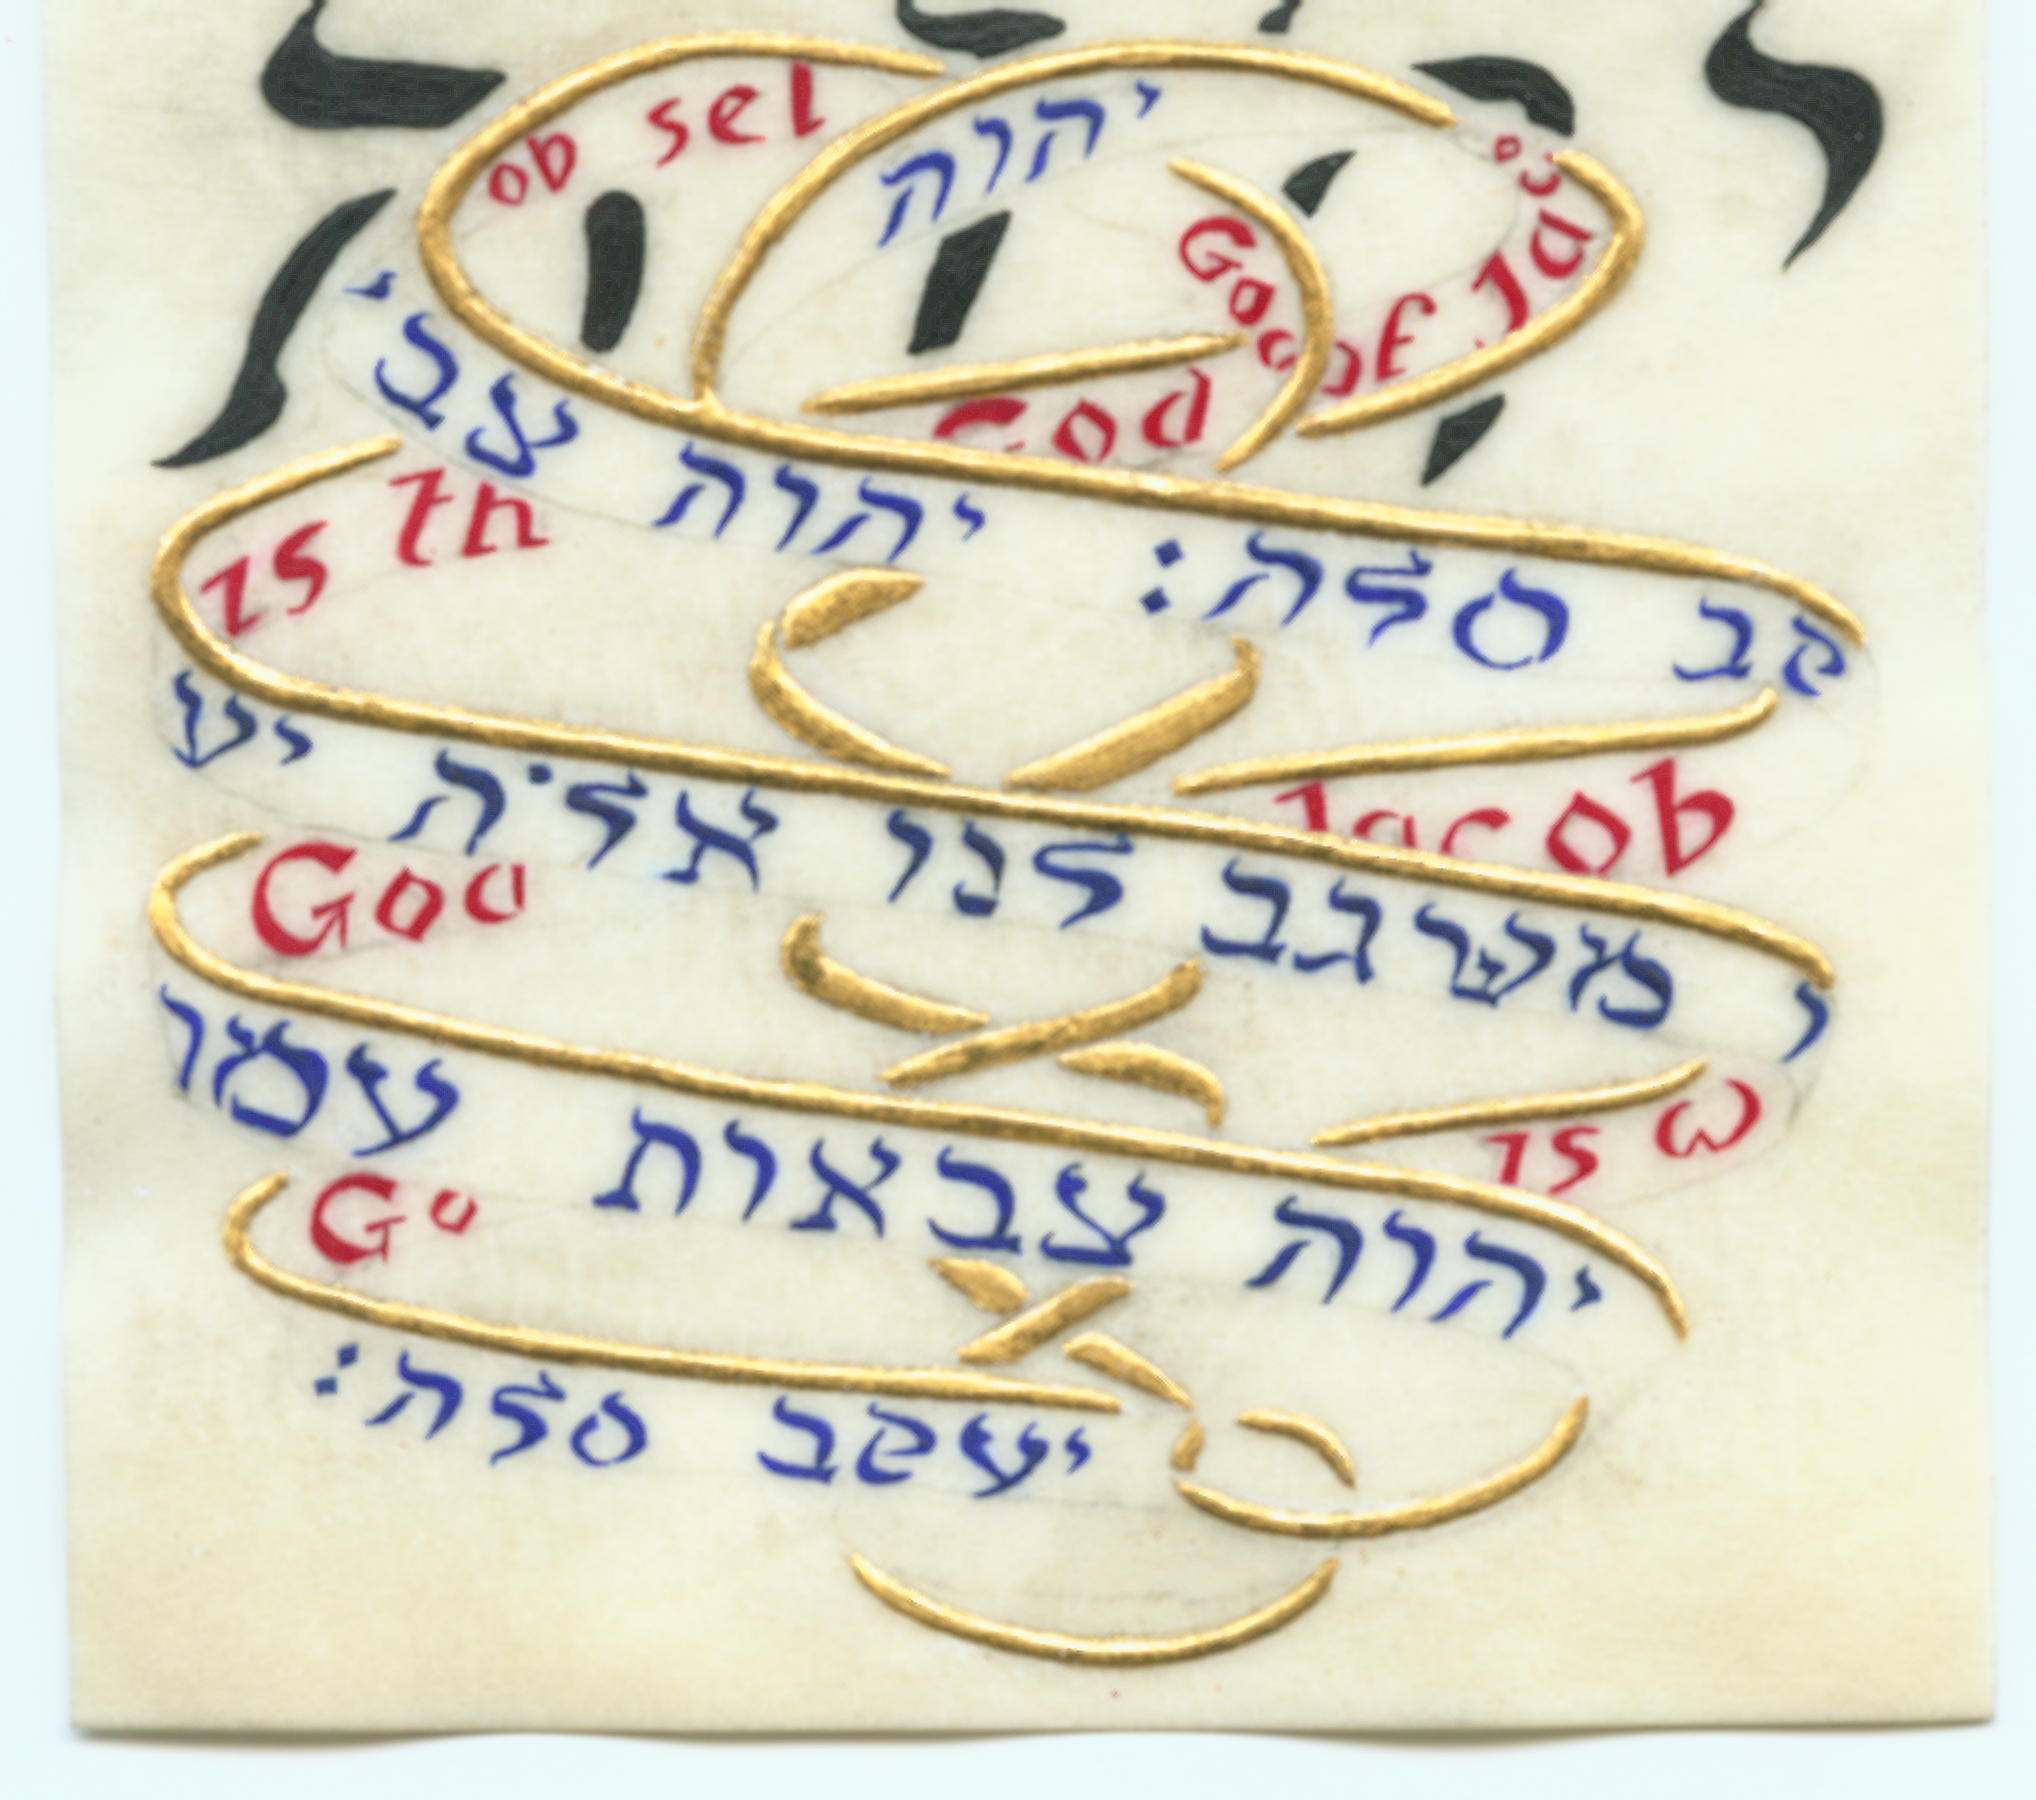 ob sel
יהוה
God
God
of Ja
יהוה צב
קב סלה׃
is th
Jacob
משגב לנו אלה יע
י
God
is w
יהוה צבאות עמו
Go
יעקב סלה׃